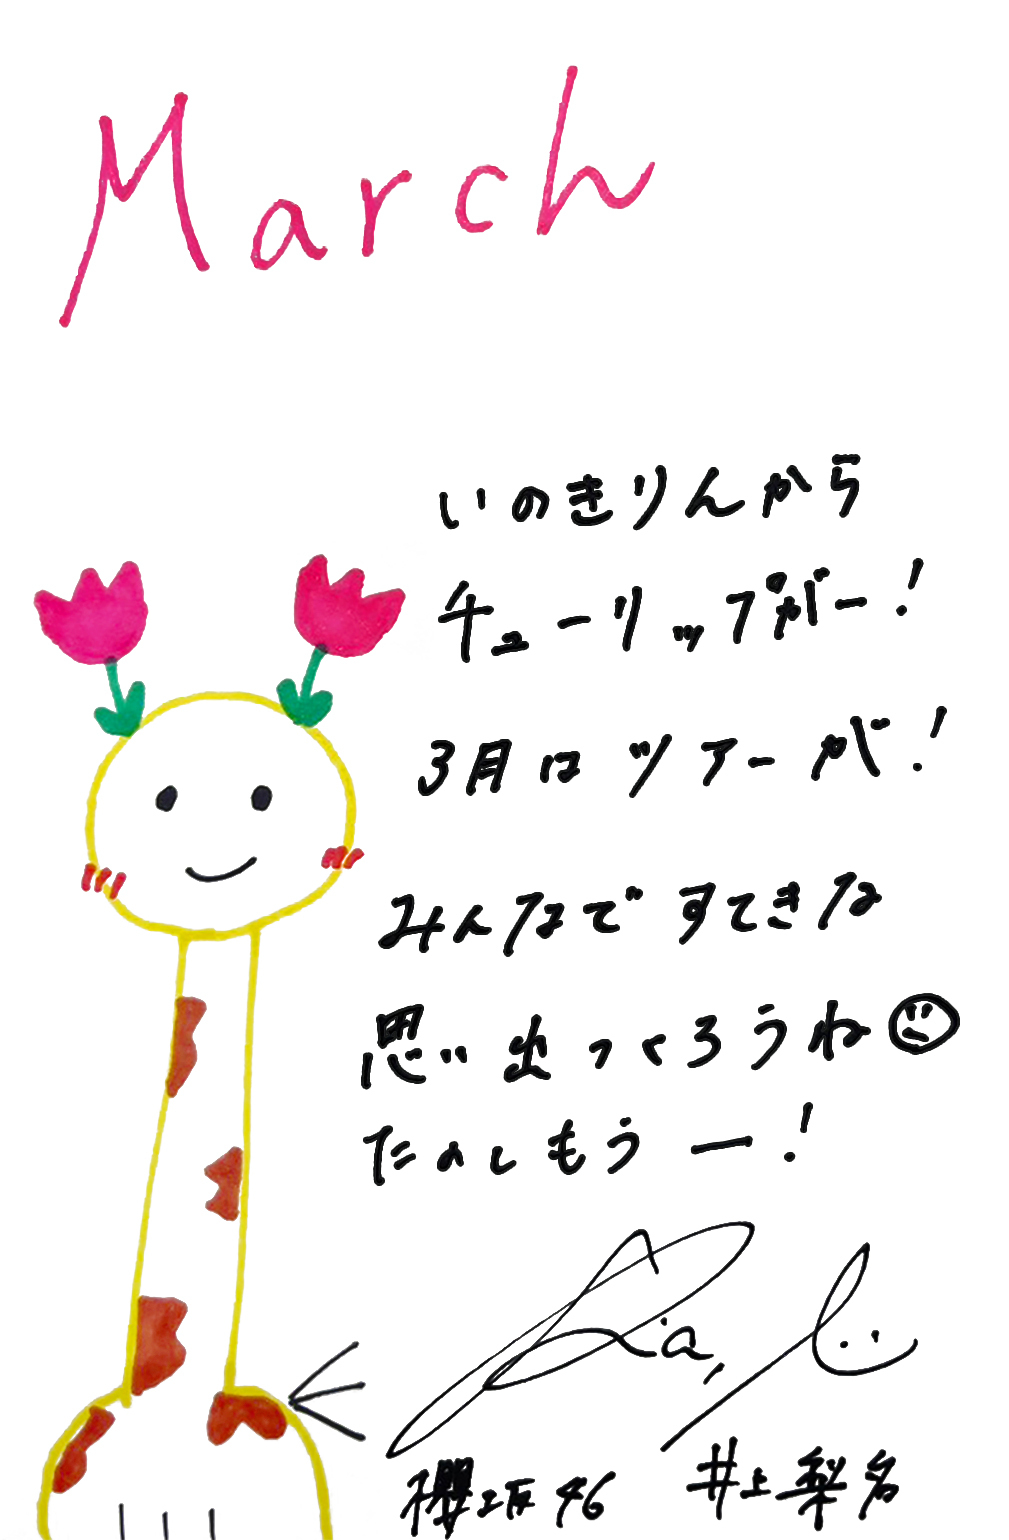 March
いのきりんから
チューリップがー!
3月はツアーが!
みんなですてきな
思い出つくろうね
たのしもうー!
櫻坂46 井上梨名